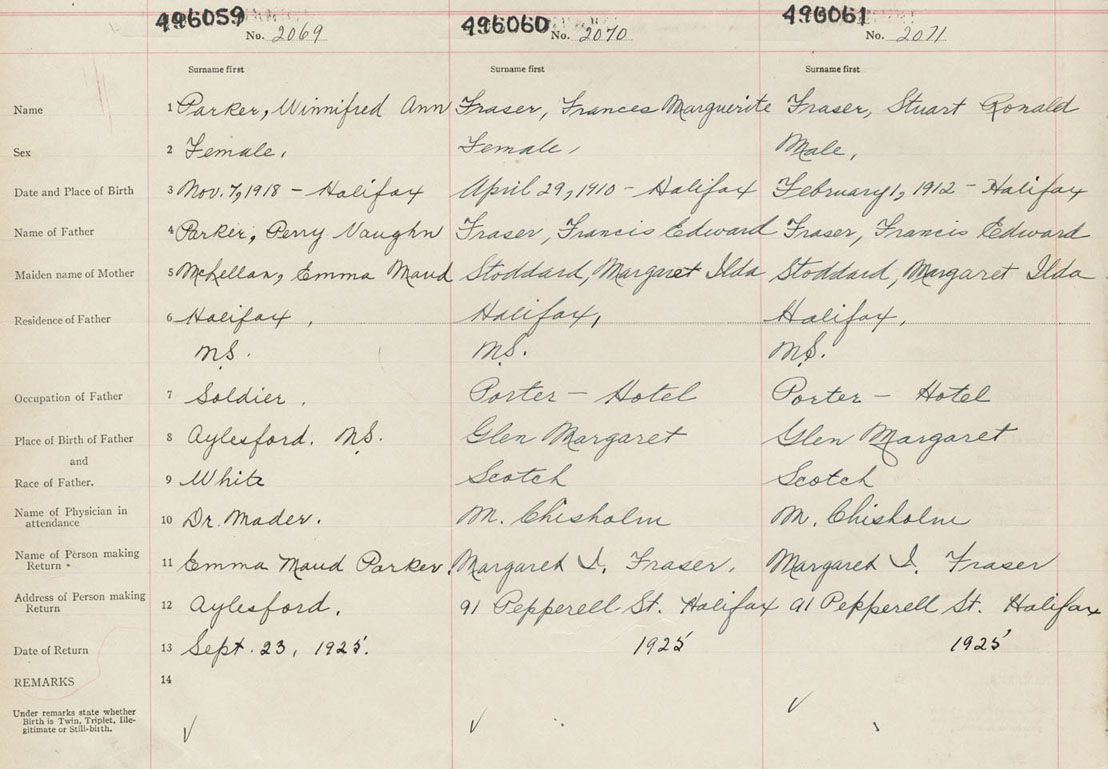 496059 496060 496061
No. 2069 No. 2070 No. 2071
Surname first Surname first Surname first
Name 1 Parker, Winnifred Ann Fraser, Frances Marguerite Fraser, Stuart Ronald
Sex 2 Female, Female, Male,
Date and Place of Birth 3 Nov. 7, 1918 - Halifax April 29, 1910 - Halifax February 1, 1912 - Halifax
Name of Father 4 Parker, Perry Vaughn Fraser, Francis Edward Fraser, Francis Edward
Maiden name of Mother 5 McLellan, Emma Maud Stoddard, Margaret Ilda Stoddard, Margaret Ilda
Residence of Father 6 Halifax, Halifax, Halifax,
N.S. N.S. N.S.
Occupation of Father 7 Soldier. Porter - Hotel Porter - Hotel
Place of Birth of Father 8 Aylesford. N.S. Glen Margaret Glen Margaret
and
Race of Father. 9 White Scotch Scotch
Name of Physician in
attendance 10 Dr. Mader. M. Chisholm M. Chisholm
Name of Person making
Return 11 Emma Maud Parker. Margaret I. Fraser. Margaret I. Fraser
Address of Person making
Return 12 Aylesford. 91 Pepperell St. Halifax 91 Pepperell St. Halifax
Date of Return 13 Sept. 23, 1925. 1925 1925
REMARKS 14
Under remarks state whether
Birth is Twin, Triplet, Ille-
gitimate or Still-birth.